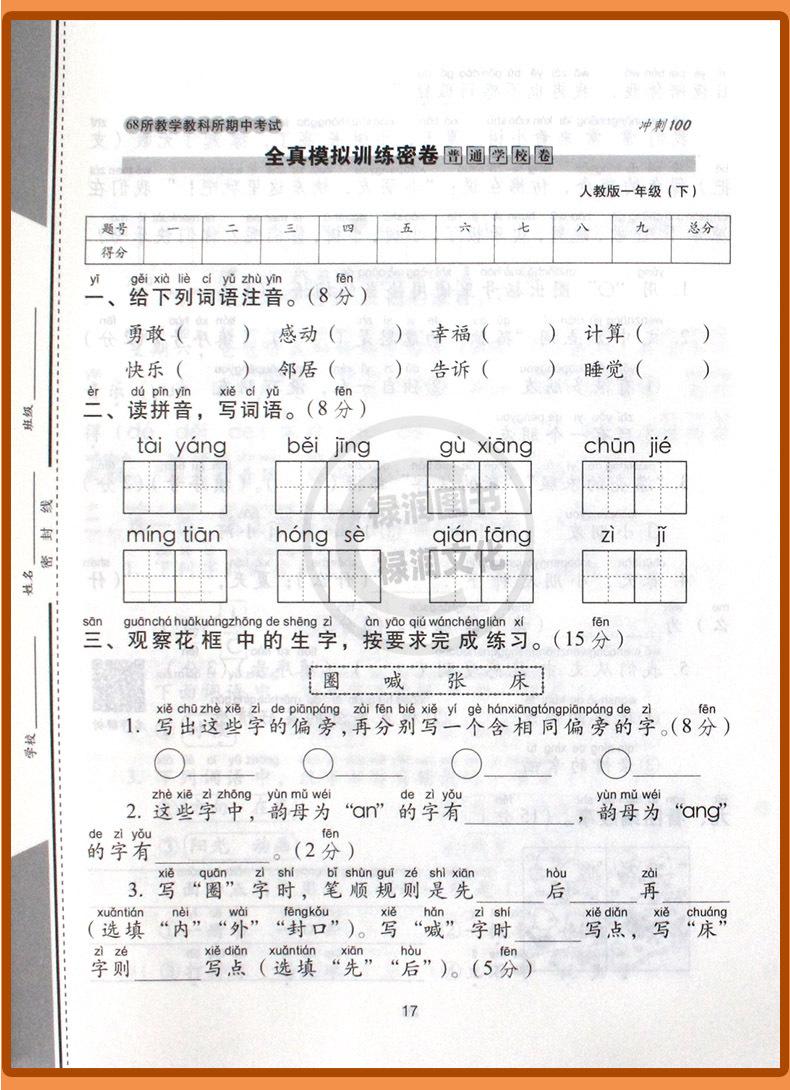 68所教学教科所期中考试
冲刺100
全真模拟训练密卷 普通学校卷
人教版一年级（下）
题号 一 二 三 四 五 六 七 八 九 总分
得分
yī gěi xià liè cí yǔ zhù yīn fēn
一、给下列词语注音。(8分)
勇敢( ) 感动( ) 幸福( ) 计算( )
快乐( ) 邻居( ) 告诉( ) 睡觉( )
èr dú pīn yīn xiě cí yǔ fēn
二、读拼音，写词语。(8分)
tài yáng běi jīng gù xiāng chūn jié
míng tiān hóng sè qián fāng zì jǐ
sān guānchá huākuàngzhōng de shēng zì àn yāo qiú wánchéngliàn xí fēn
三、观察花框中的生字，按要求完成练习。(15分)
圈 喊 张 床
xiě chū zhè xiē zì de piānpáng zài fēn bié xiě yí gè hánxiāngtóngpiānpáng de zì fēn
1. 写出这些字的偏旁,再分别写一个含相同偏旁的字。(8分)
zhè xiē zì zhōng yùn mǔ wéi de zì yǒu yùn mǔ wéi
2. 这些字中，韵母为“an”的字有________，韵母为“ang”
de zì yǒu fēn
的字有________。(2分)
xiě quān zì shí bǐ shùn guī zé shì xiān hòu zài
3. 写“圈”字时，笔顺规则是先______后______再______
xuǎntián nèi wài fēngkǒu xiě hǎn zì shí xiě diǎn xiě chuáng
(选填“内”“外”“封口”)。写“喊”字时______写点，写“床”
zì zé xiě diǎn xuǎntián xiān hòu fēn
字则______写点(选填“先”“后”)。(5分)
17
学校
姓名
班级
密 封 线
禄润图书
禄润文化